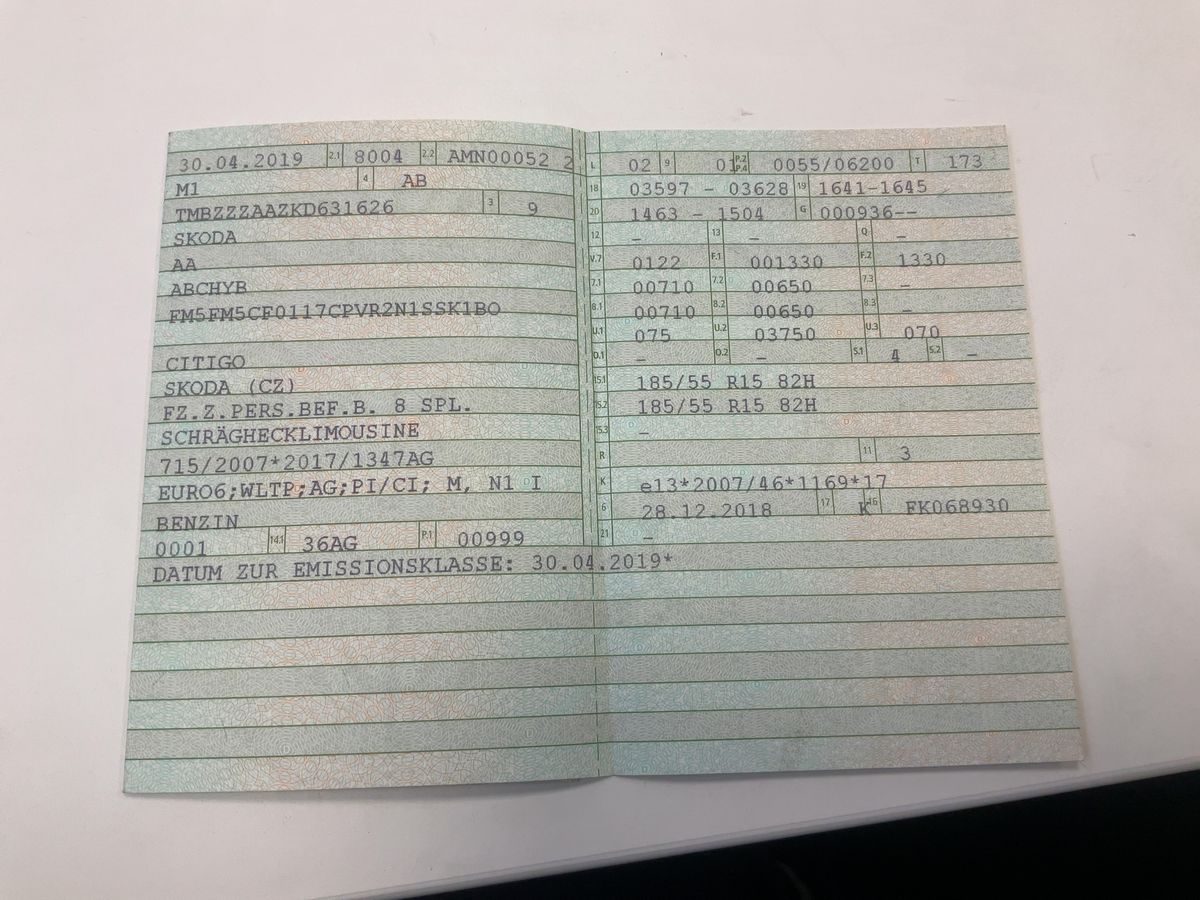 30.04.2019 2.1 8004 2.2 AMN00052 2
M1 4 AB
TMBZZZAAZKD631626 3 9
SKODA
AA
ABCHYB
FM5FM5CF0117CPVR2N1SSK1BO
CITIGO
SKODA (CZ)
FZ.Z.PERS.BEF.B. 8 SPL.
SCHRÄGHECKLIMOUSINE
715/2007*2017/1347AG
EURO6;WLTP;AG;PI/CI; M, N1 I
BENZIN
0001 14.1 36AG P.1 00999
DATUM ZUR EMISSIONSKLASSE: 30.04.2019*
L 02 9 01 P.2 P.4 0055/06200 T 173
18 03597 - 03628 19 1641-1645
20 1463 - 1504 G 000936--
12 – 13 – Q –
V.7 0122 F.1 001330 F.2 1330
7.1 00710 7.2 00650 7.3 –
8.1 00710 8.2 00650 8.3 –
U.1 075 U.2 03750 U.3 070
O.1 – O.2 – S.1 4 S.2 –
15.1 185/55 R15 82H
15.2 185/55 R15 82H
15.3 –
R 11 3
K e13*2007/46*1169*17
6 28.12.2018 17 K 16 FK068930
21 –